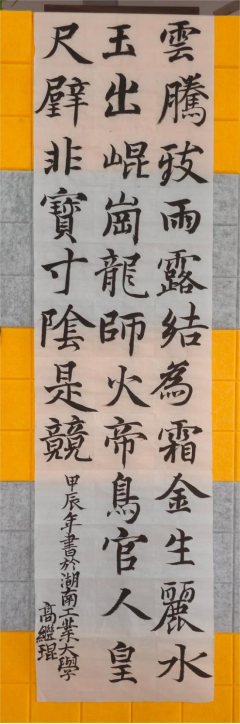 雲騰致雨露結為霜金生麗水
玉出崐崗龍師火帝鳥官人皇
尺璧非寶寸陰是競
甲辰年書於湖南工業大學
高繼琨